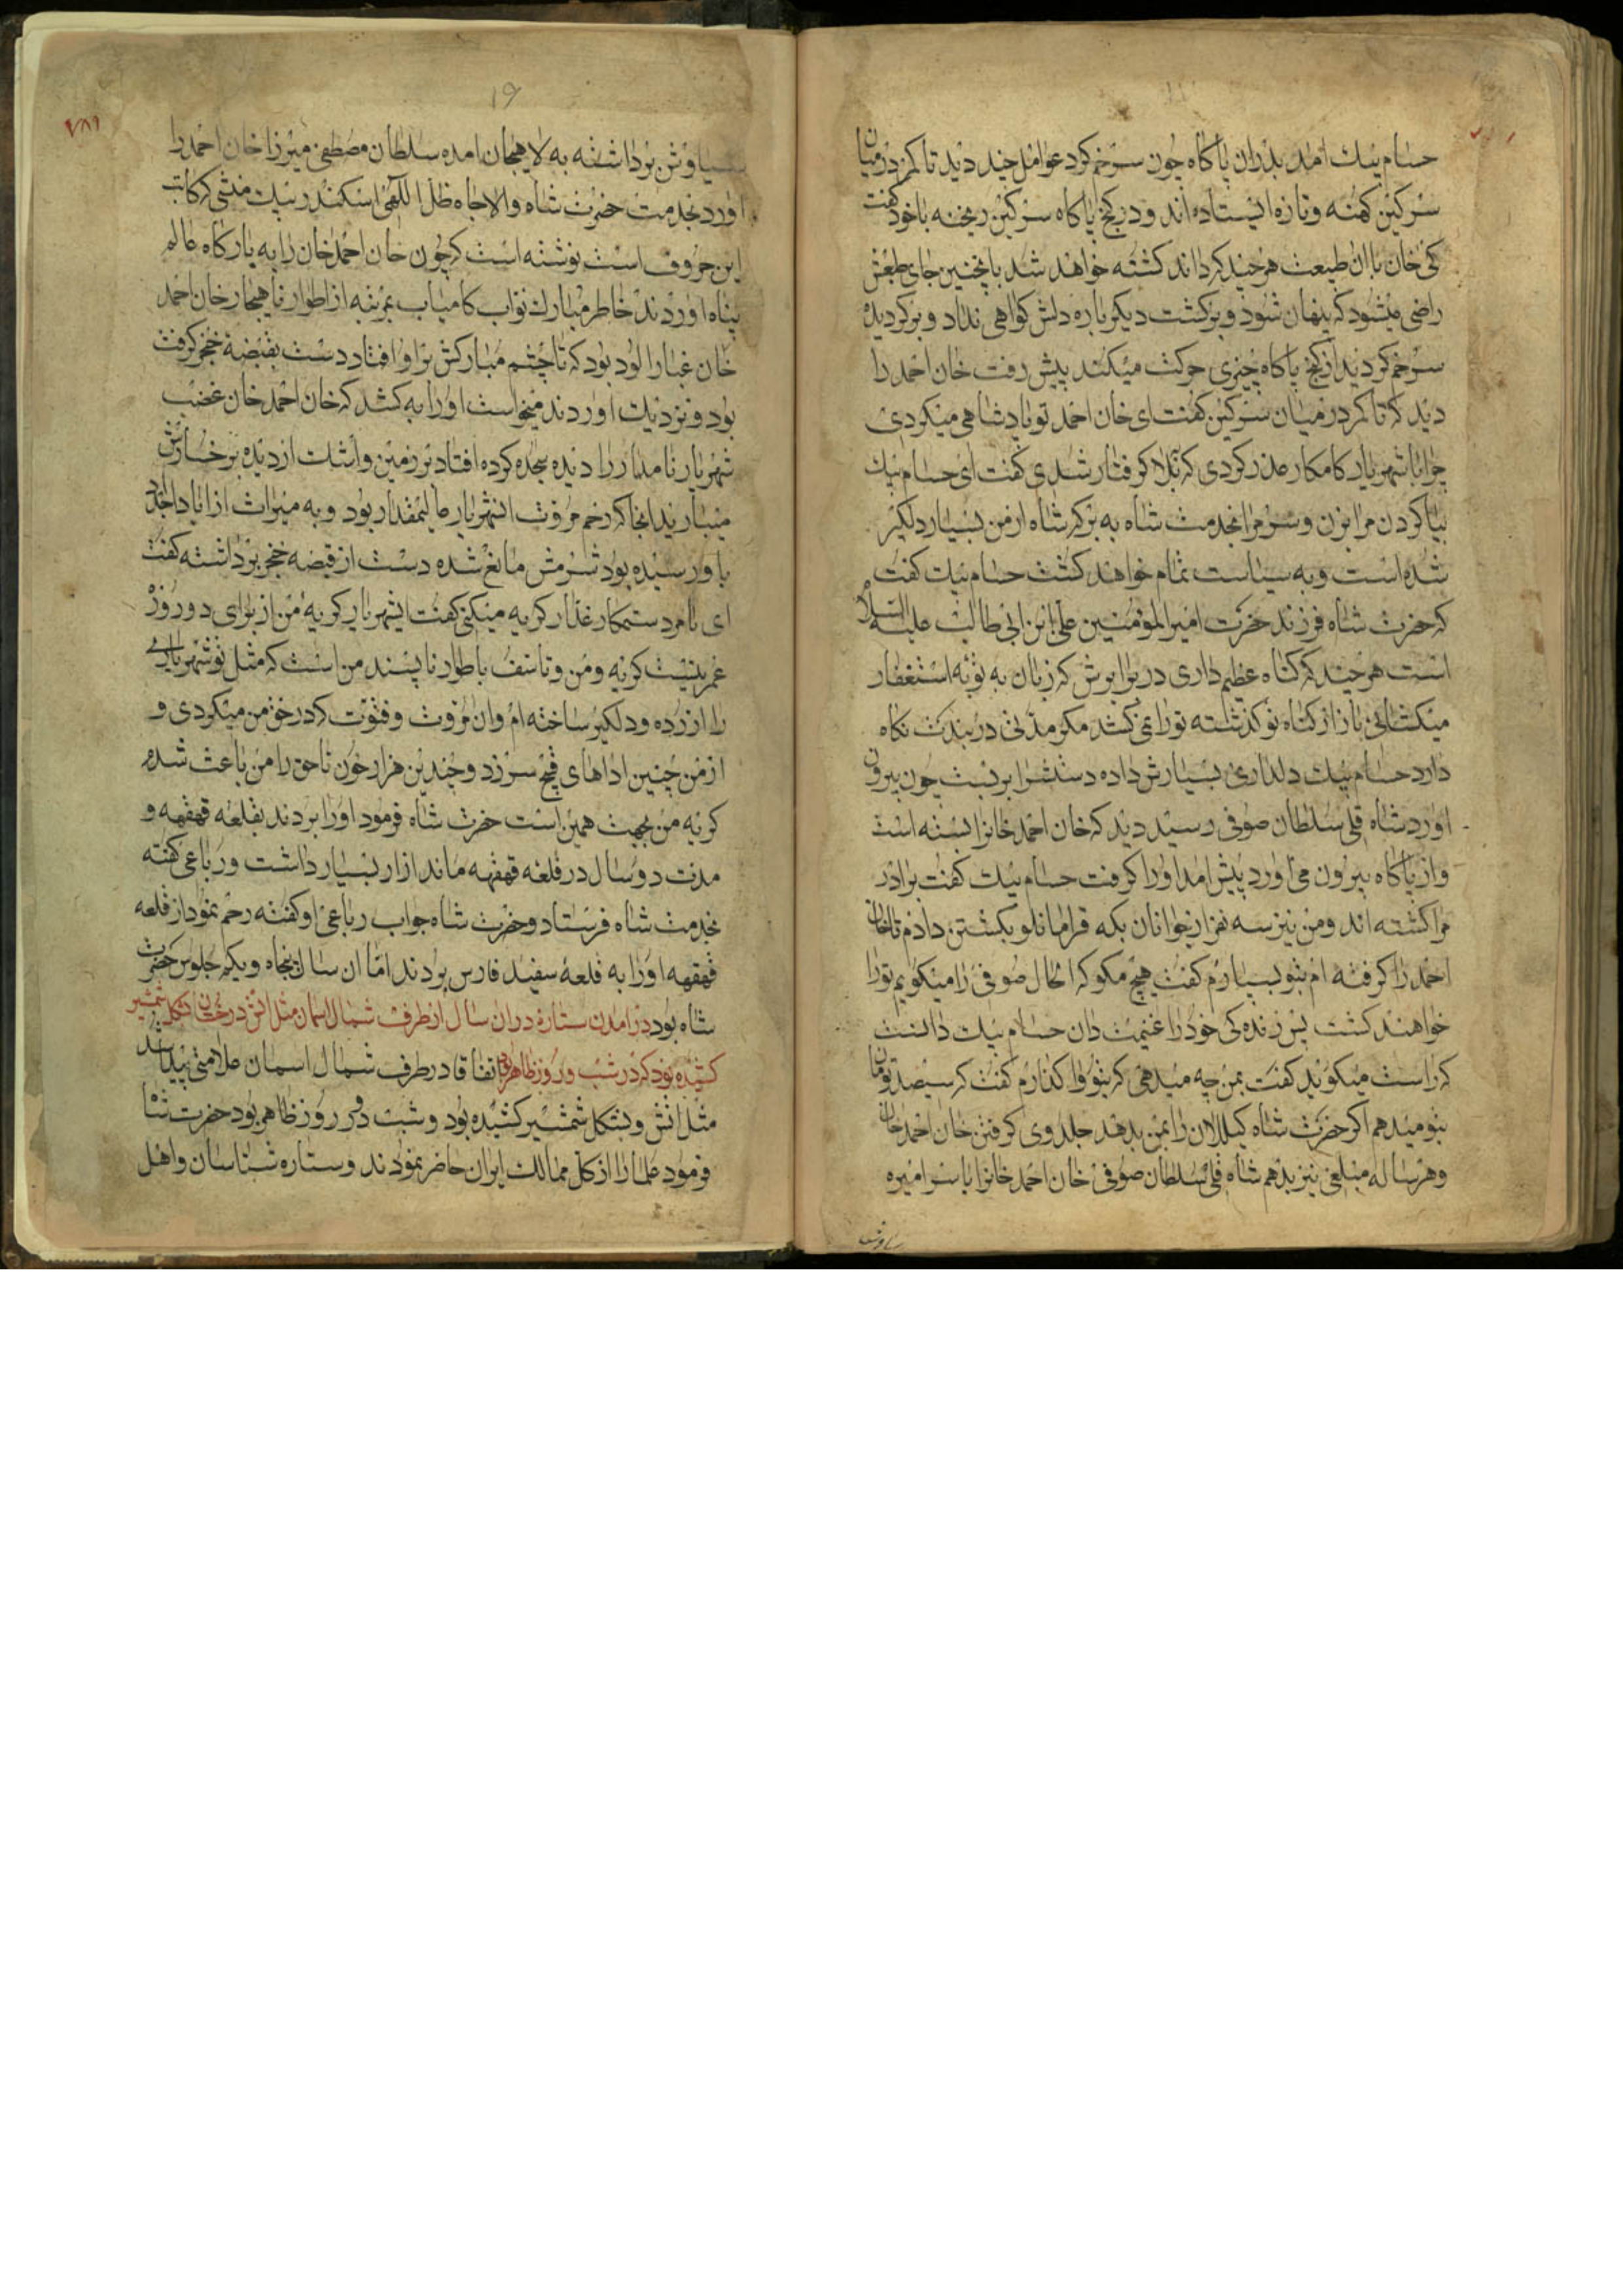 حسام بیك امد بدران پاکاه چون سرخم کرد عوامل چند دید تا کمر در میان
سرکین کهنه و تازه ایستاده اند و در کنج پاکاه سرکین ریخته باخود کفت
کی خان باان طبیعت هرچند که داند کشته خواهد شد باینچنین جای طبعش
راضی میشود که پنهان شود و برکشت دیکرباره دلش کواهی نداد و برکردیده
سرخم کرد دید از کنج پاکاه چیزی حرکت میکند پیش رفت خان احمد را
دید که تا کمر در میان سرکین کفت ای خان احمد تو پادشاهی میکردی
چرا با شهریار کامکار غدر کردی که ببلا کرفتار شدی کفت ای حسام بیك
بیا کردن مرا بزن و سر مرا بخدمت شاه به بر که شاه از من بسیار دلکیر
شده است و به سیاست تمام خواهد کشت حسام بیك کفت
که حضرت شاه فرزند حضرت امیرالمؤمنین علی ابن ابی طالب علیه السلام
است هرچند که کناه عظیم داری در برابرش که زبان به توبه استغفار
میکشائی باز از کناه تو کذشته تورا نمی کشد مکر مدتی در بندت نکاه
دارد حسام بیك دلداری بسیارش داده دستشرا بر بست چون بیرون
اورد شاه قلی سلطان صوفی رسید دید که خان احمد خانرا بسته است
و از پاکاه بیرون می اورد پیش امد اورا کرفت حسام بیك کفت برادر
مرا کشته اند و من نیز سه نفر از جوانان بکه قرامانلو بکشتن دادم تا خان
احمد را کرفته ام بتو بسپارم کفت هیچ مکو که الحال صوفی را میکویم تورا
خواهند کشت پس زنده کی خود را غنیمت دان حسام بیك دانست
که راست میکوید کفت بمن چه میدهی که بتو واکذارم کفت که سیصد تومان
بتو میدهم اکر حضرت شاه کیلان را بمن بدهد جلدوی کرفتن خان احمد خان
و هرساله مبلغی نیز بدهم شاه قلی سلطان صوفی خان احمد خانرا با سر امیره
سیاوش
۱۶
۷۸۱
سیاوش برداشته به لاهیجان امده سلطان مصطفی میرزا خان احمد را
اورد بخدمت حضرت شاه والاجاه ظل اللهی اسکندر بیك منشی که کاتب
این حروف است نوشته است که چون خان احمد خان را به بارکاه عالم
پناه اوردند خاطر مبارك نواب کامیاب بمرتبه از اطوار ناهنجار خان احمد
خان غبار الود بود که تا چشم مبارکش براو افتاد دست بقبضۀ خنجر کرفت
بود و نزدیك اوردند میخواست اورا به کشد که خان احمد خان غضب
شهریار نامدار را دیده سجده کرده افتاد بر زمین و اشك از دیده بر خسارش
میبارید انجا که رحم مروت انشهریار عالیمقدار بود و به میراث از ابا و اجداد
باو رسیده بود شرمش مانع شده دست از قبضه خنجر برداشته کفت
ای نامرد ستمکار غدار کریه میکنی کفت ایشهریار کریه من از برای دو روزه
عمر نیست کریه و من و تاسف باطوار ناپسند من است که مثل تو شهریاری
را ازرده و دلکیر ساخته ام وان مروت و فتوت که در حق من میکردی و
از من چنین اداهای قبیح سر زد و چندین هزار خون ناحق را من باعث شده
کریه من بجهت همین است حضرت شاه فرمود اورا بردند بقلعه قهقهه و
مدت دو سال در قلعه قهقهه ماند ازار بسیار داشت و رباعی کفته
بخدمت شاه فرستاد و حضرت شاه جواب رباعی او کفته رحم نمود از قلعه
قهقهه اورا به قلعۀ سفید فارس بردند اما ان سال پنجاه و یکم جلوس حضرت
شاه بود درامدن ستاره دران سال از طرف شمال اسمان مثل اتش درخشان بشکل شمشیر
کشیده بود که در شب و روز ظاهر بود اتفاقا در طرف شمال اسمان علامتی پیدا شد
مثل اتش و بشکل شمشیر کشیده بود و شب و روز ظاهر بود حضرت شاه
فرمود علما را از کل ممالك ایران حاضر نمودند و ستاره شناسان و اهل